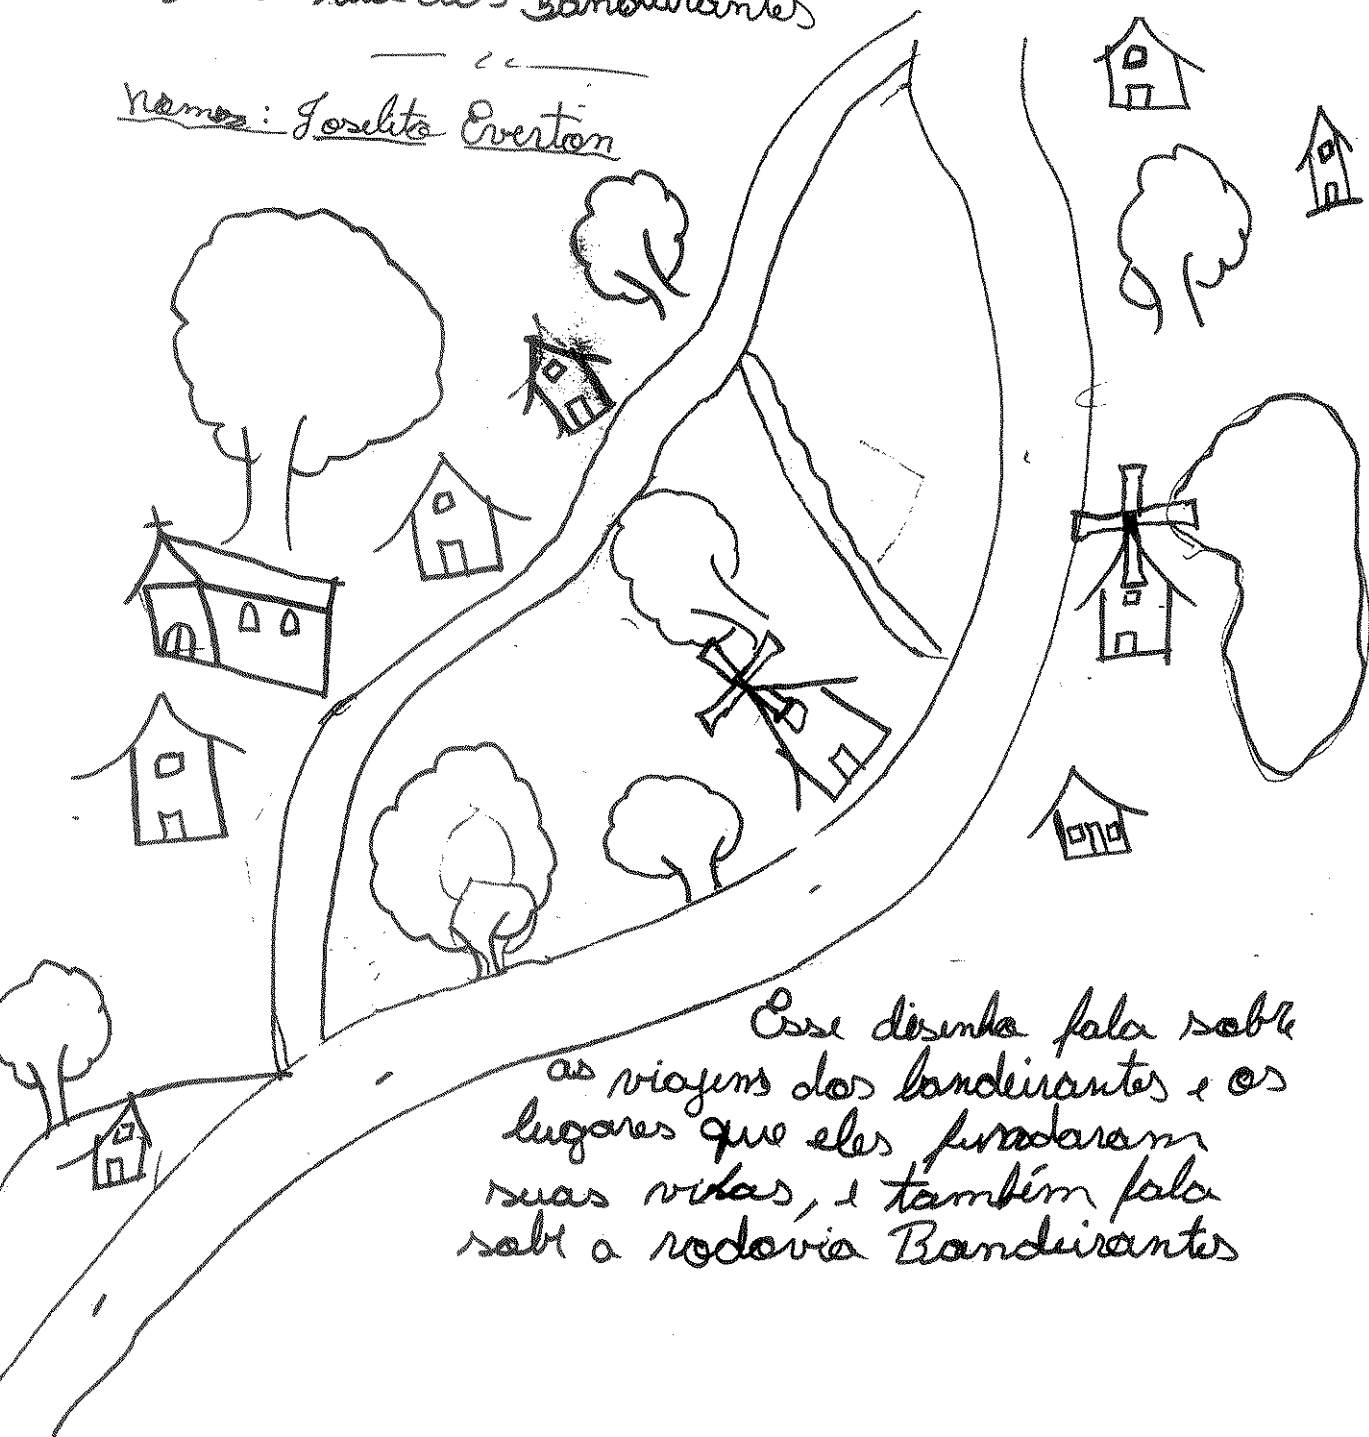 dos Bandeirantes
nomes: Joselito Everton
Esse disenho fala sobre
as viagens dos bandeirantes e os
lugares que eles fundaram
suas vidas, e também fala
sobre a rodovia Bandeirantes